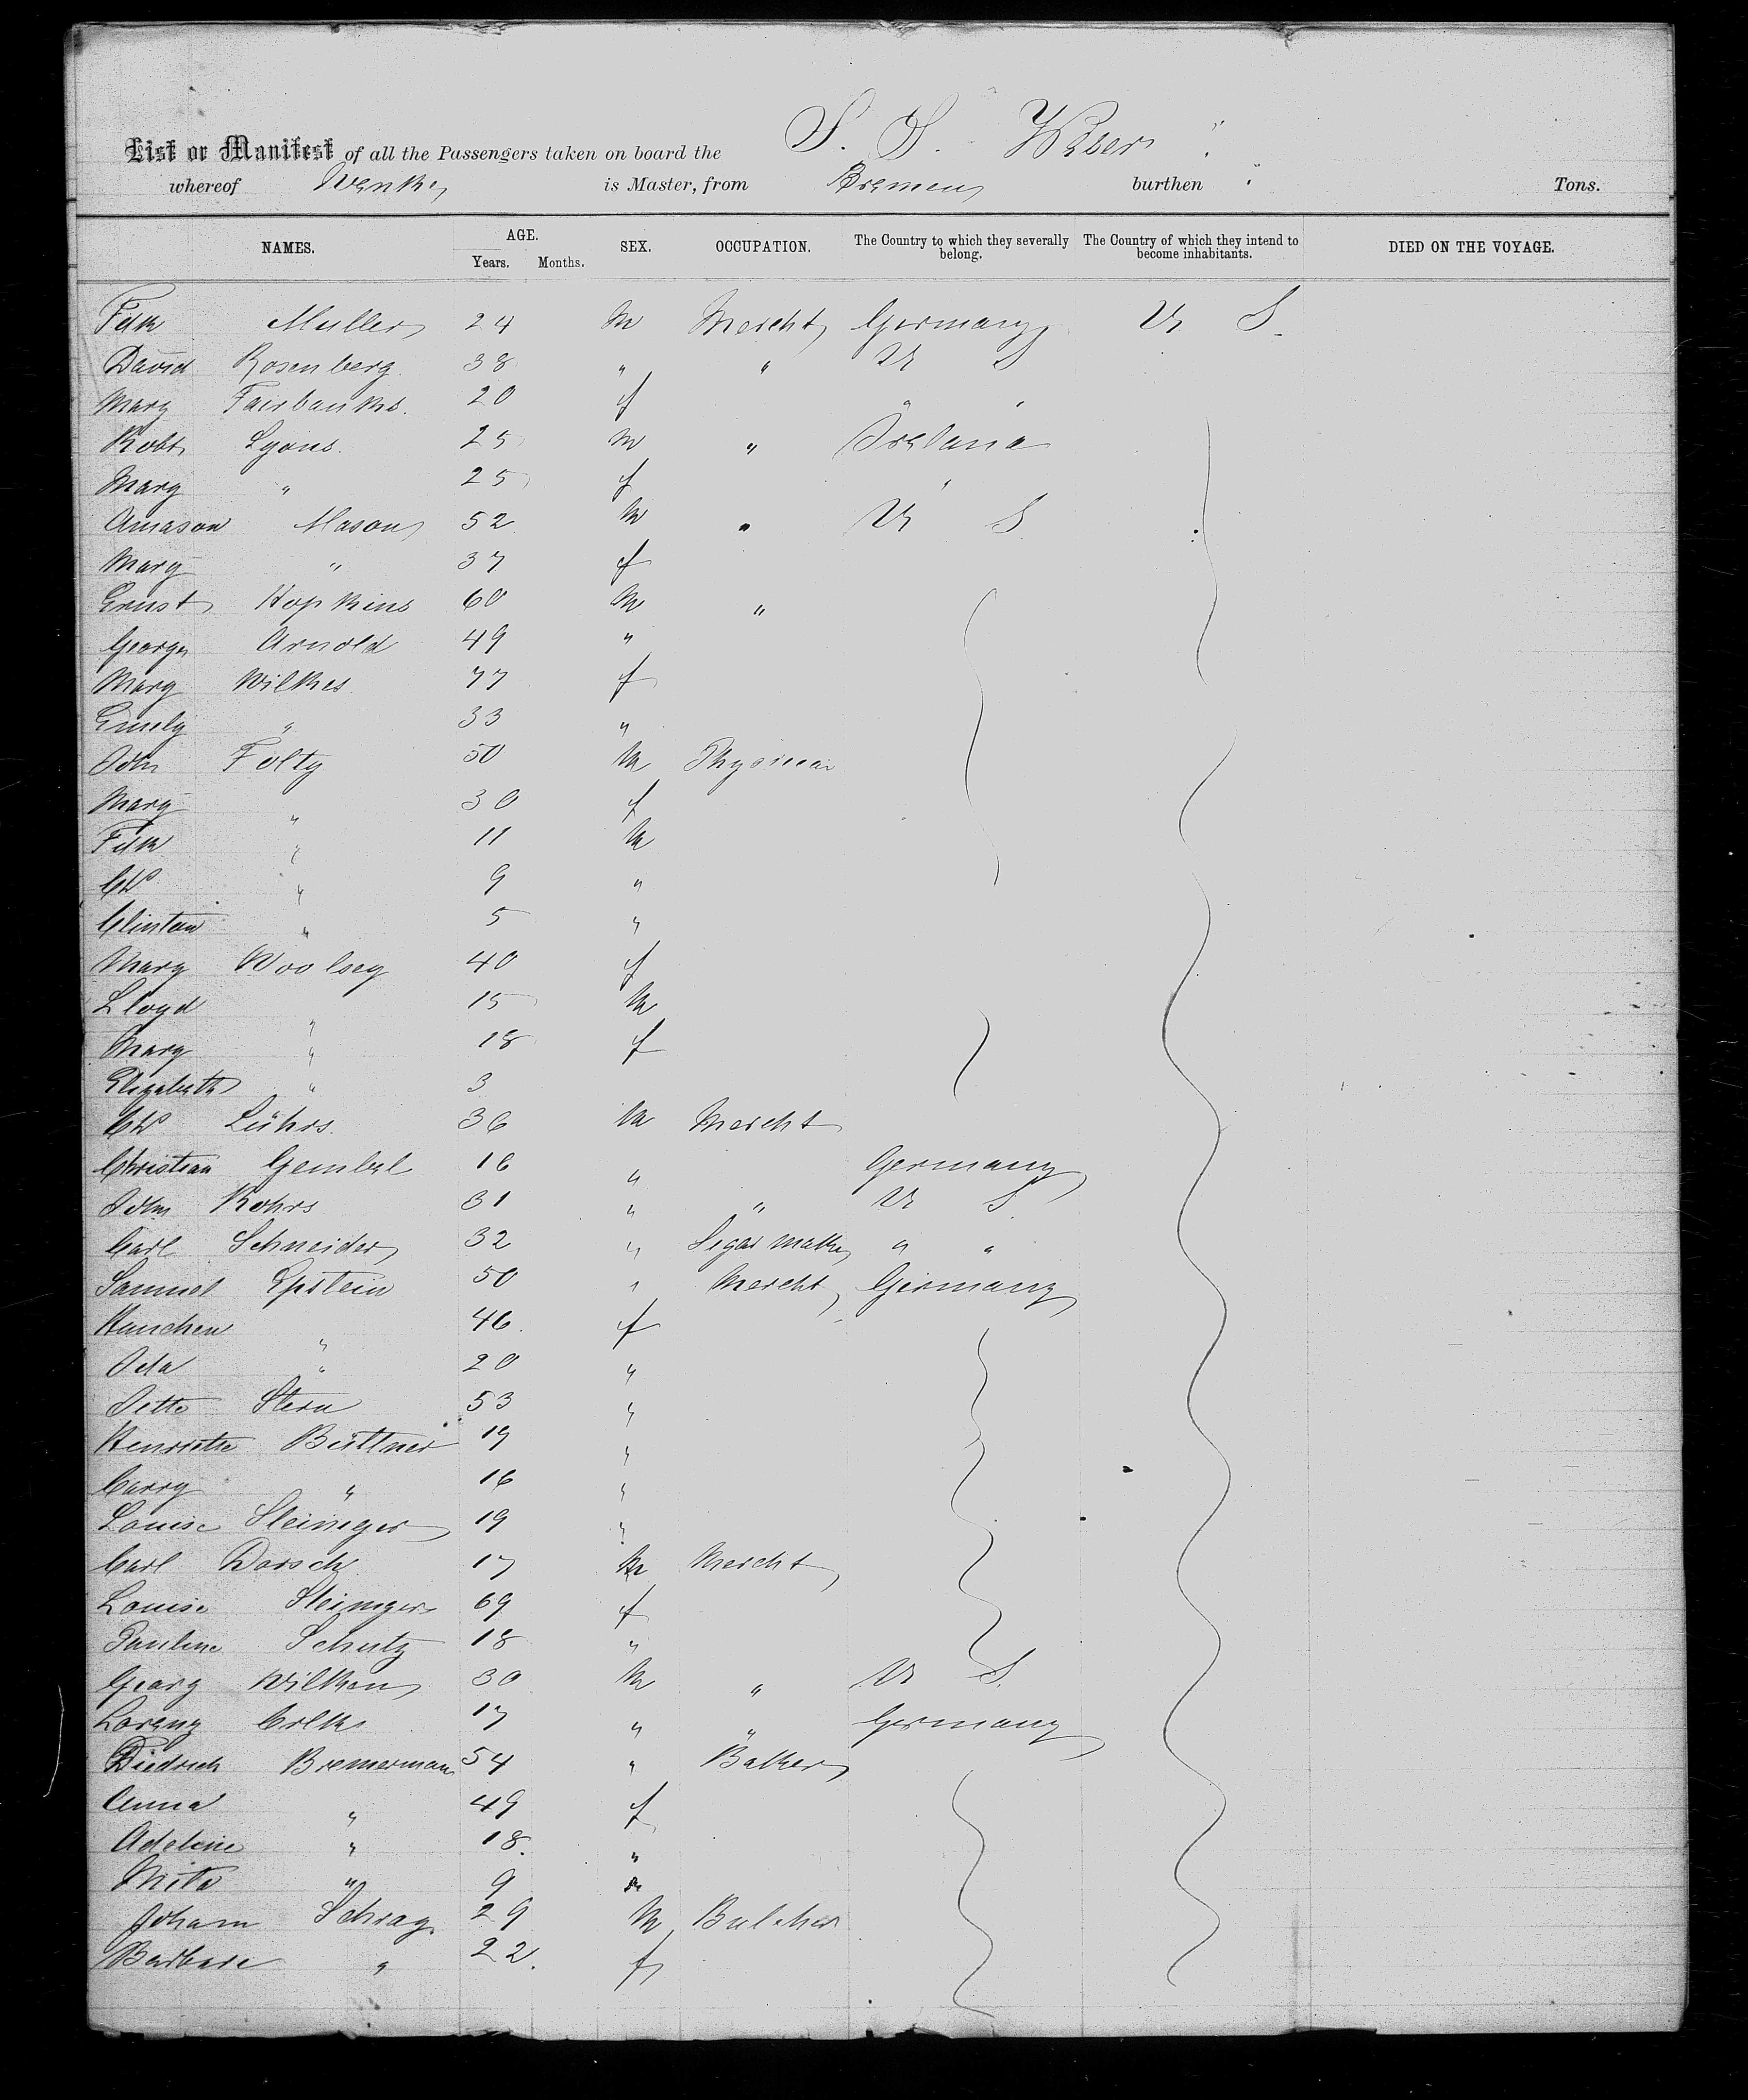 List or Manifest of all the Passengers taken on board the S. S. Weser
whereof is Master, from Bremen burthen Tons.
NAMES. AGE. Years. Months. SEX. OCCUPATION. The Country to which they severally belong. The Country of which they intend to become inhabitants. DIED ON THE VOYAGE.
Muller 24 m Mercht Germany U S
David Rosenberg 38 " " U S
Mary Fairbanks. 20 f " "
Robt Lyons. 25 m " Ireland
Mary " 25 f "
Amason Mason 52 m " U S
Mary " 37 f
Ernst Hopkins 60 m "
George Arnold 49 "
Mary Wilkes 77 f
Emely " 33 "
John Folty 50 m Physician
Mary " 30 f
" 11 m
" 9 "
Clinton " 5 "
Mary Woolsey 40 f
Lloyd " 15 m
Mary " 18 f
Elizabeth " 3
Lührs. 36 m Mercht
Christian Gembel 16 " Germany
John Rohrs 31 " " U S
Carl Schneider 32 " Segar maker " "
Samuel Epstein 50 " Mercht Germany
Hanchen " 46 f
Ida " 20 "
Jette Stern 53 "
Henriette Büttner 19 "
Carry " 16 "
Louise Steiniger 19 "
Carl Dorsch 17 m Mercht
Louise Steiniger 69 f
Pauline Schutz 18 "
Georg Wilkens 30 m " U S
Lorenz 17 " " Germany
Diedrich Bremermann 54 " Baker
Anna " 49 f
Adeline " 18. "
Meta " 9 "
Johann Schrag 29 m Butcher
Barbara " 22. f